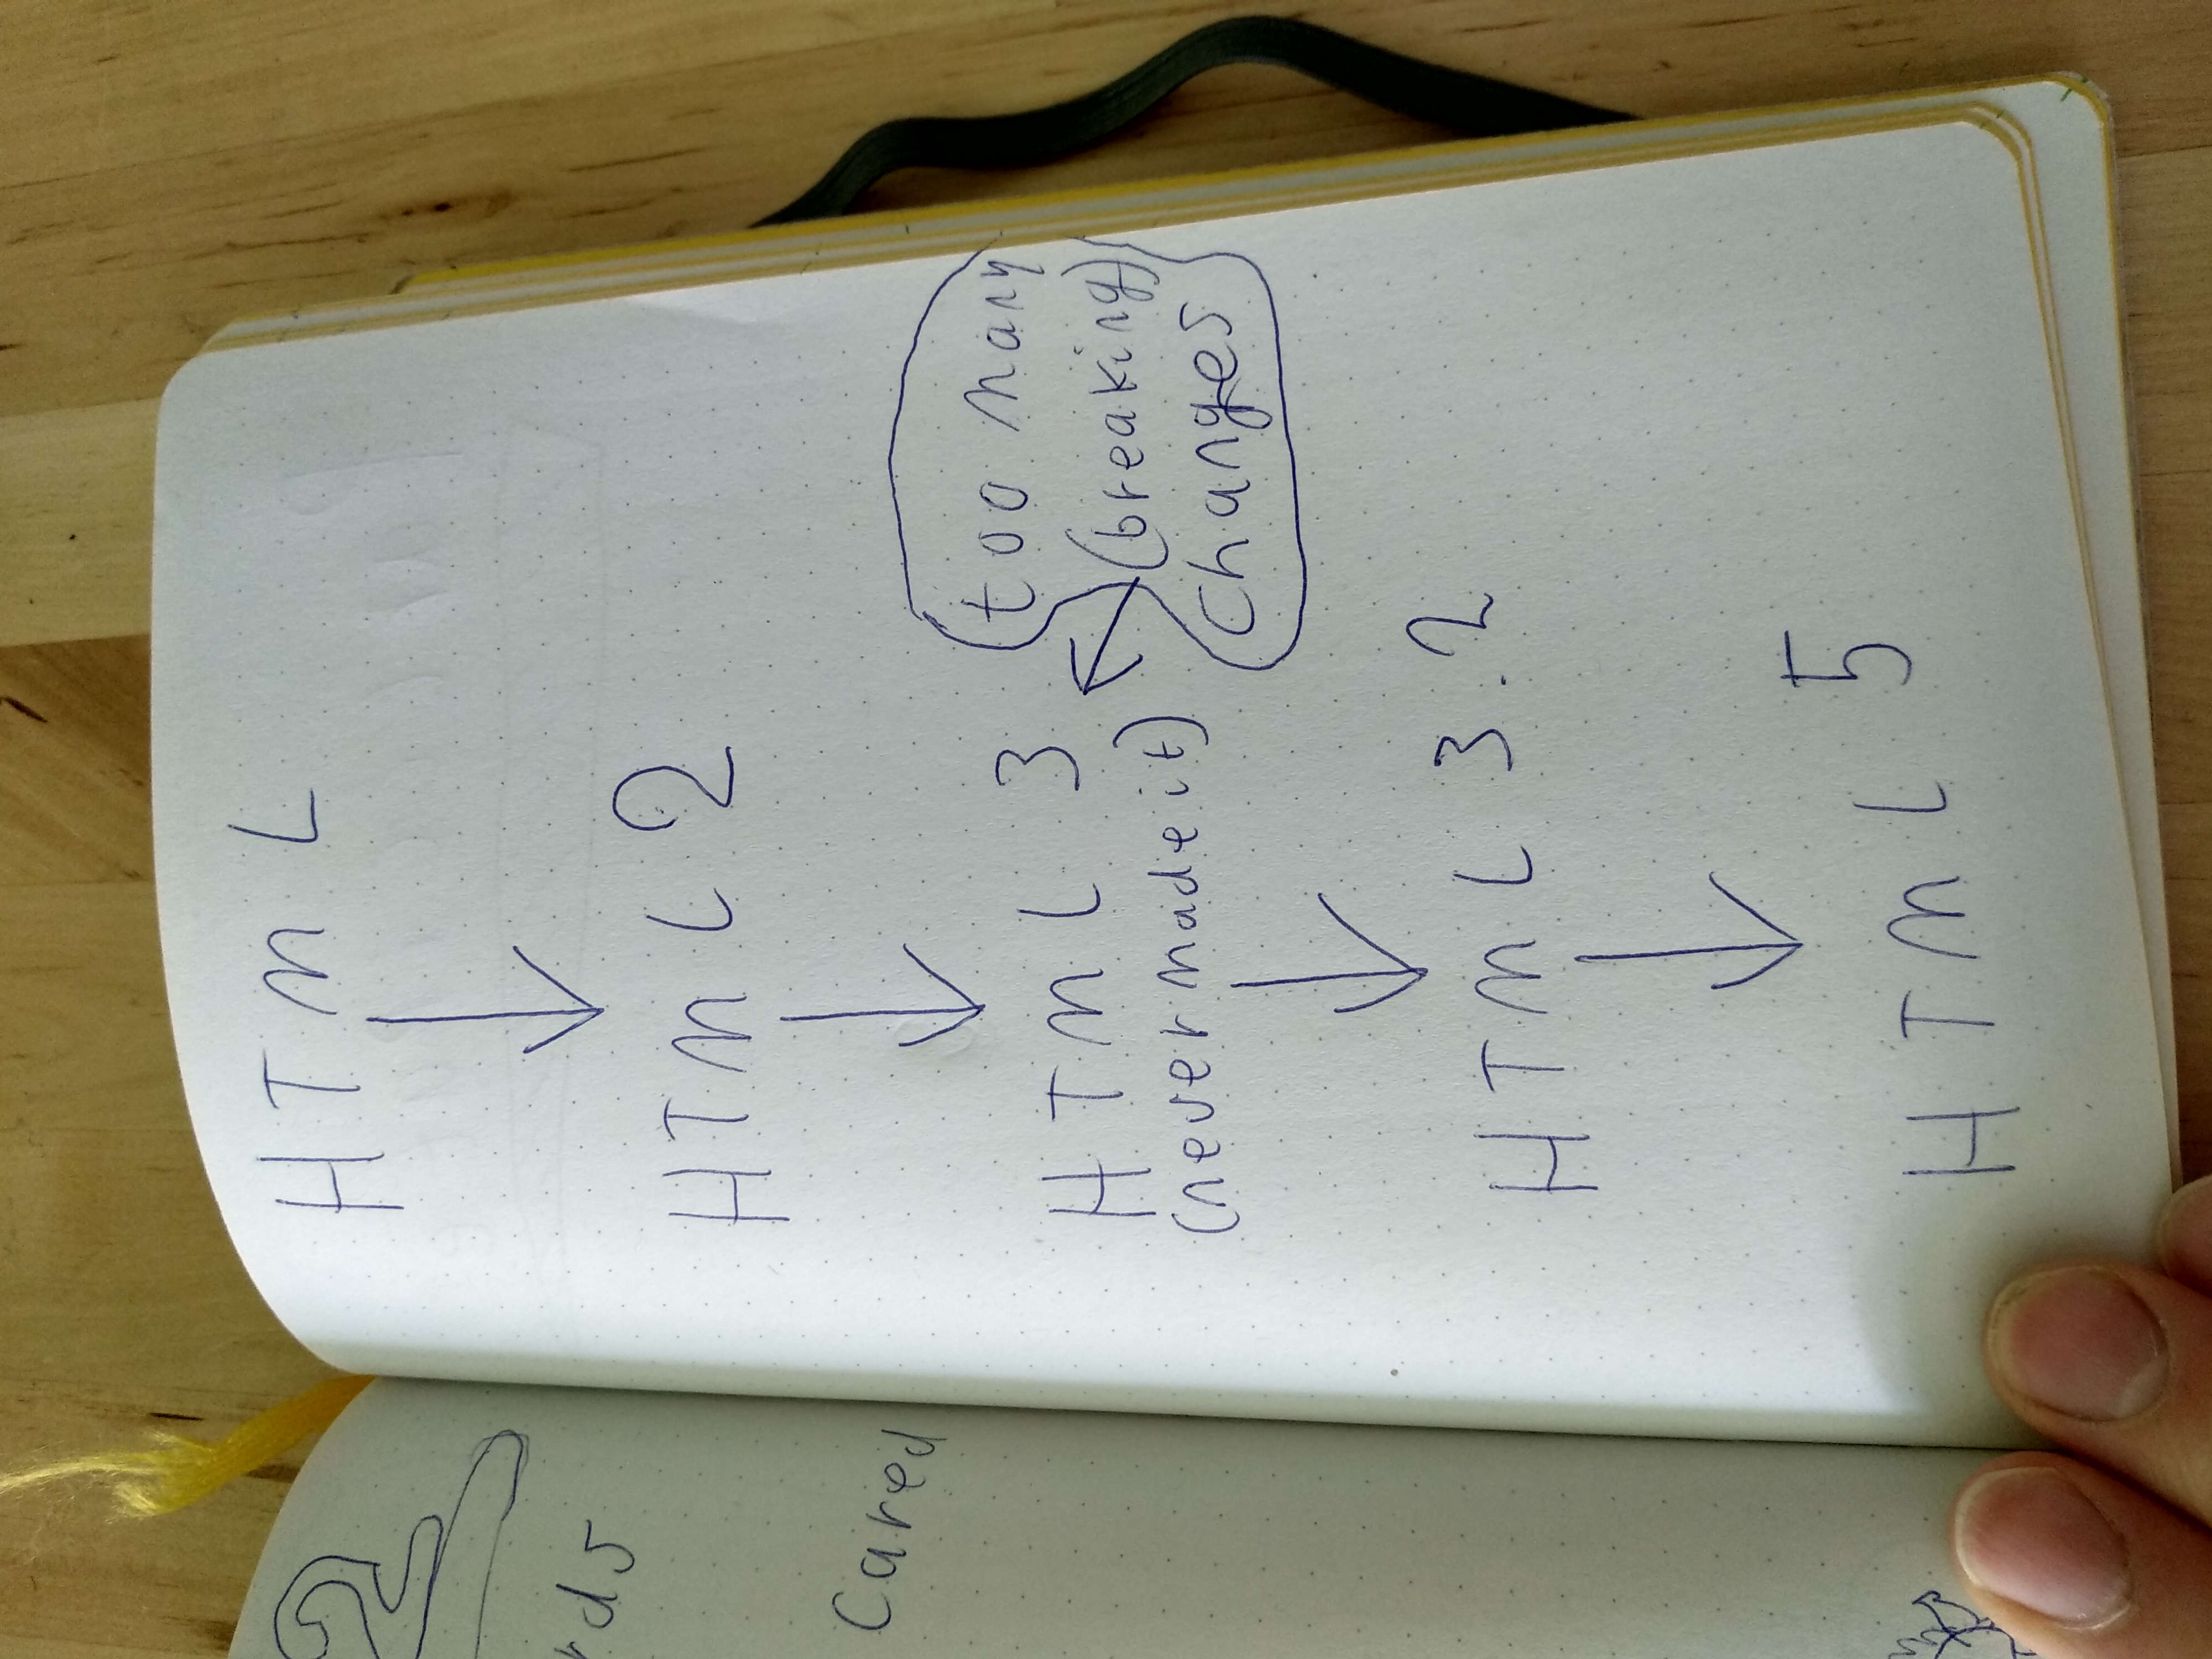 Cared
HTML
HTML 2
HTML 3
(never made it)
too many
(breaking)
changes
HTML 3.2
HTML 5